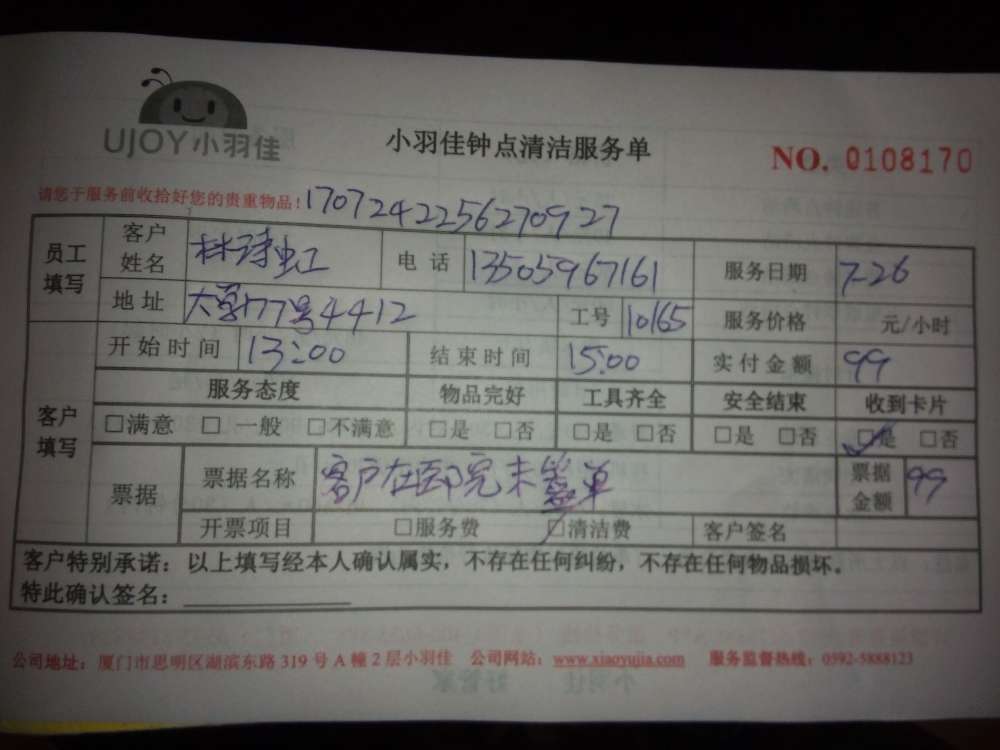 UJOY小羽佳
小羽佳钟点清洁服务单
NO. 0108170
请您于服务前收拾好您的贵重物品！1707242256270927
员工填写 客户姓名 林诗虹 电话 13505967161 服务日期 7-26
地址 大学177号4412 工号 10165 服务价格 元/小时
客户填写 开始时间 13:00 结束时间 15:00 实付金额 99
服务态度 物品完好 工具齐全 安全结束 收到卡片
□满意 □一般 □不满意 □是 □否 □是 □否 □是 □否 □是 □否
票据 票据名称 客户在医院未签单 票据金额 99
开票项目 □服务费 □清洁费 客户签名
客户特别承诺：以上填写经本人确认属实，不存在任何纠纷，不存在任何物品损坏。
特此确认签名：
公司地址：厦门市思明区湖滨东路319号A幢2层小羽佳 公司网站：www.xiaoyujia.com 服务监督热线：0592-5888123